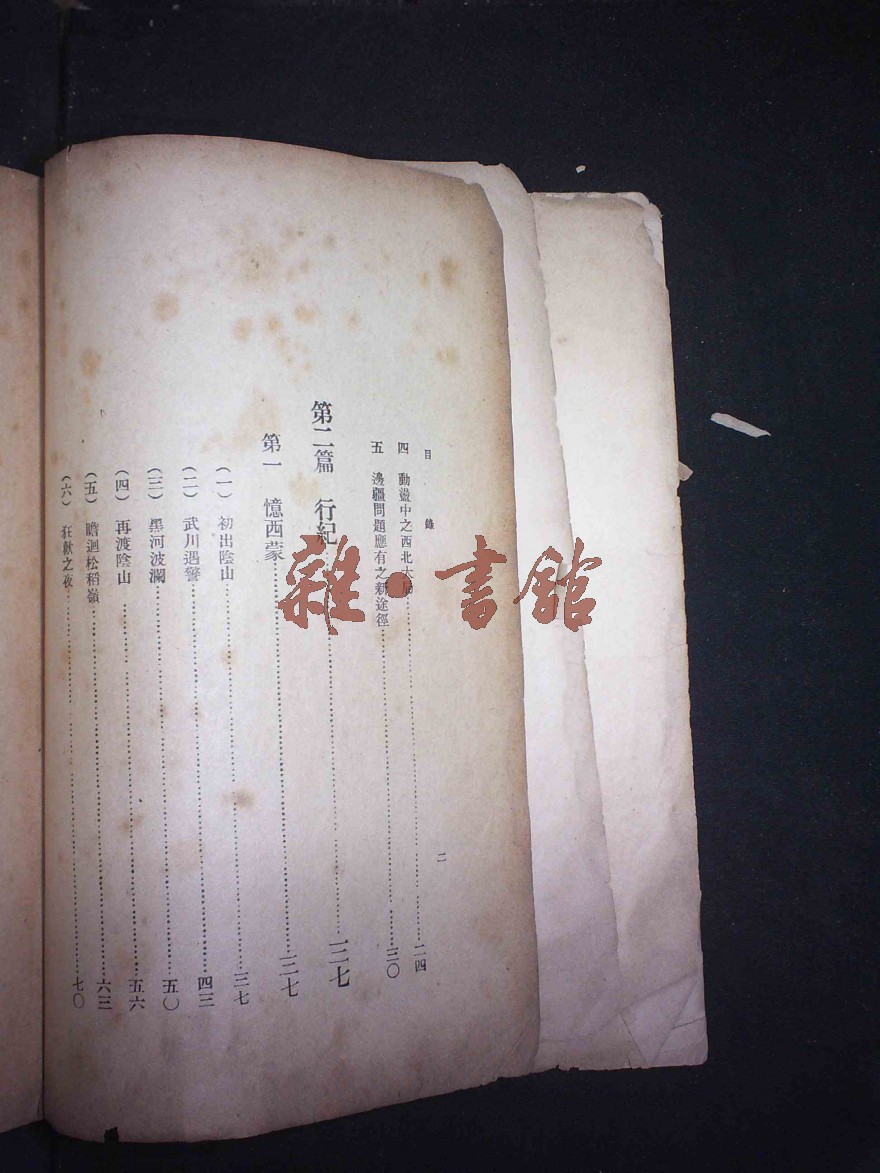 目錄
二
四 動盪中之西北大局……二四
五 邊疆問題應有之新途徑……三〇
第二篇 行紀……三七
第一 憶西蒙……三七
(一) 初出陰山……三七
(二) 武川遇警……四三
(三) 黑河波瀾……五〇
(四) 再渡陰山……五六
(五) 瞻迴松稻嶺……六三
(六) 狂歡之夜……七〇
雜·書館